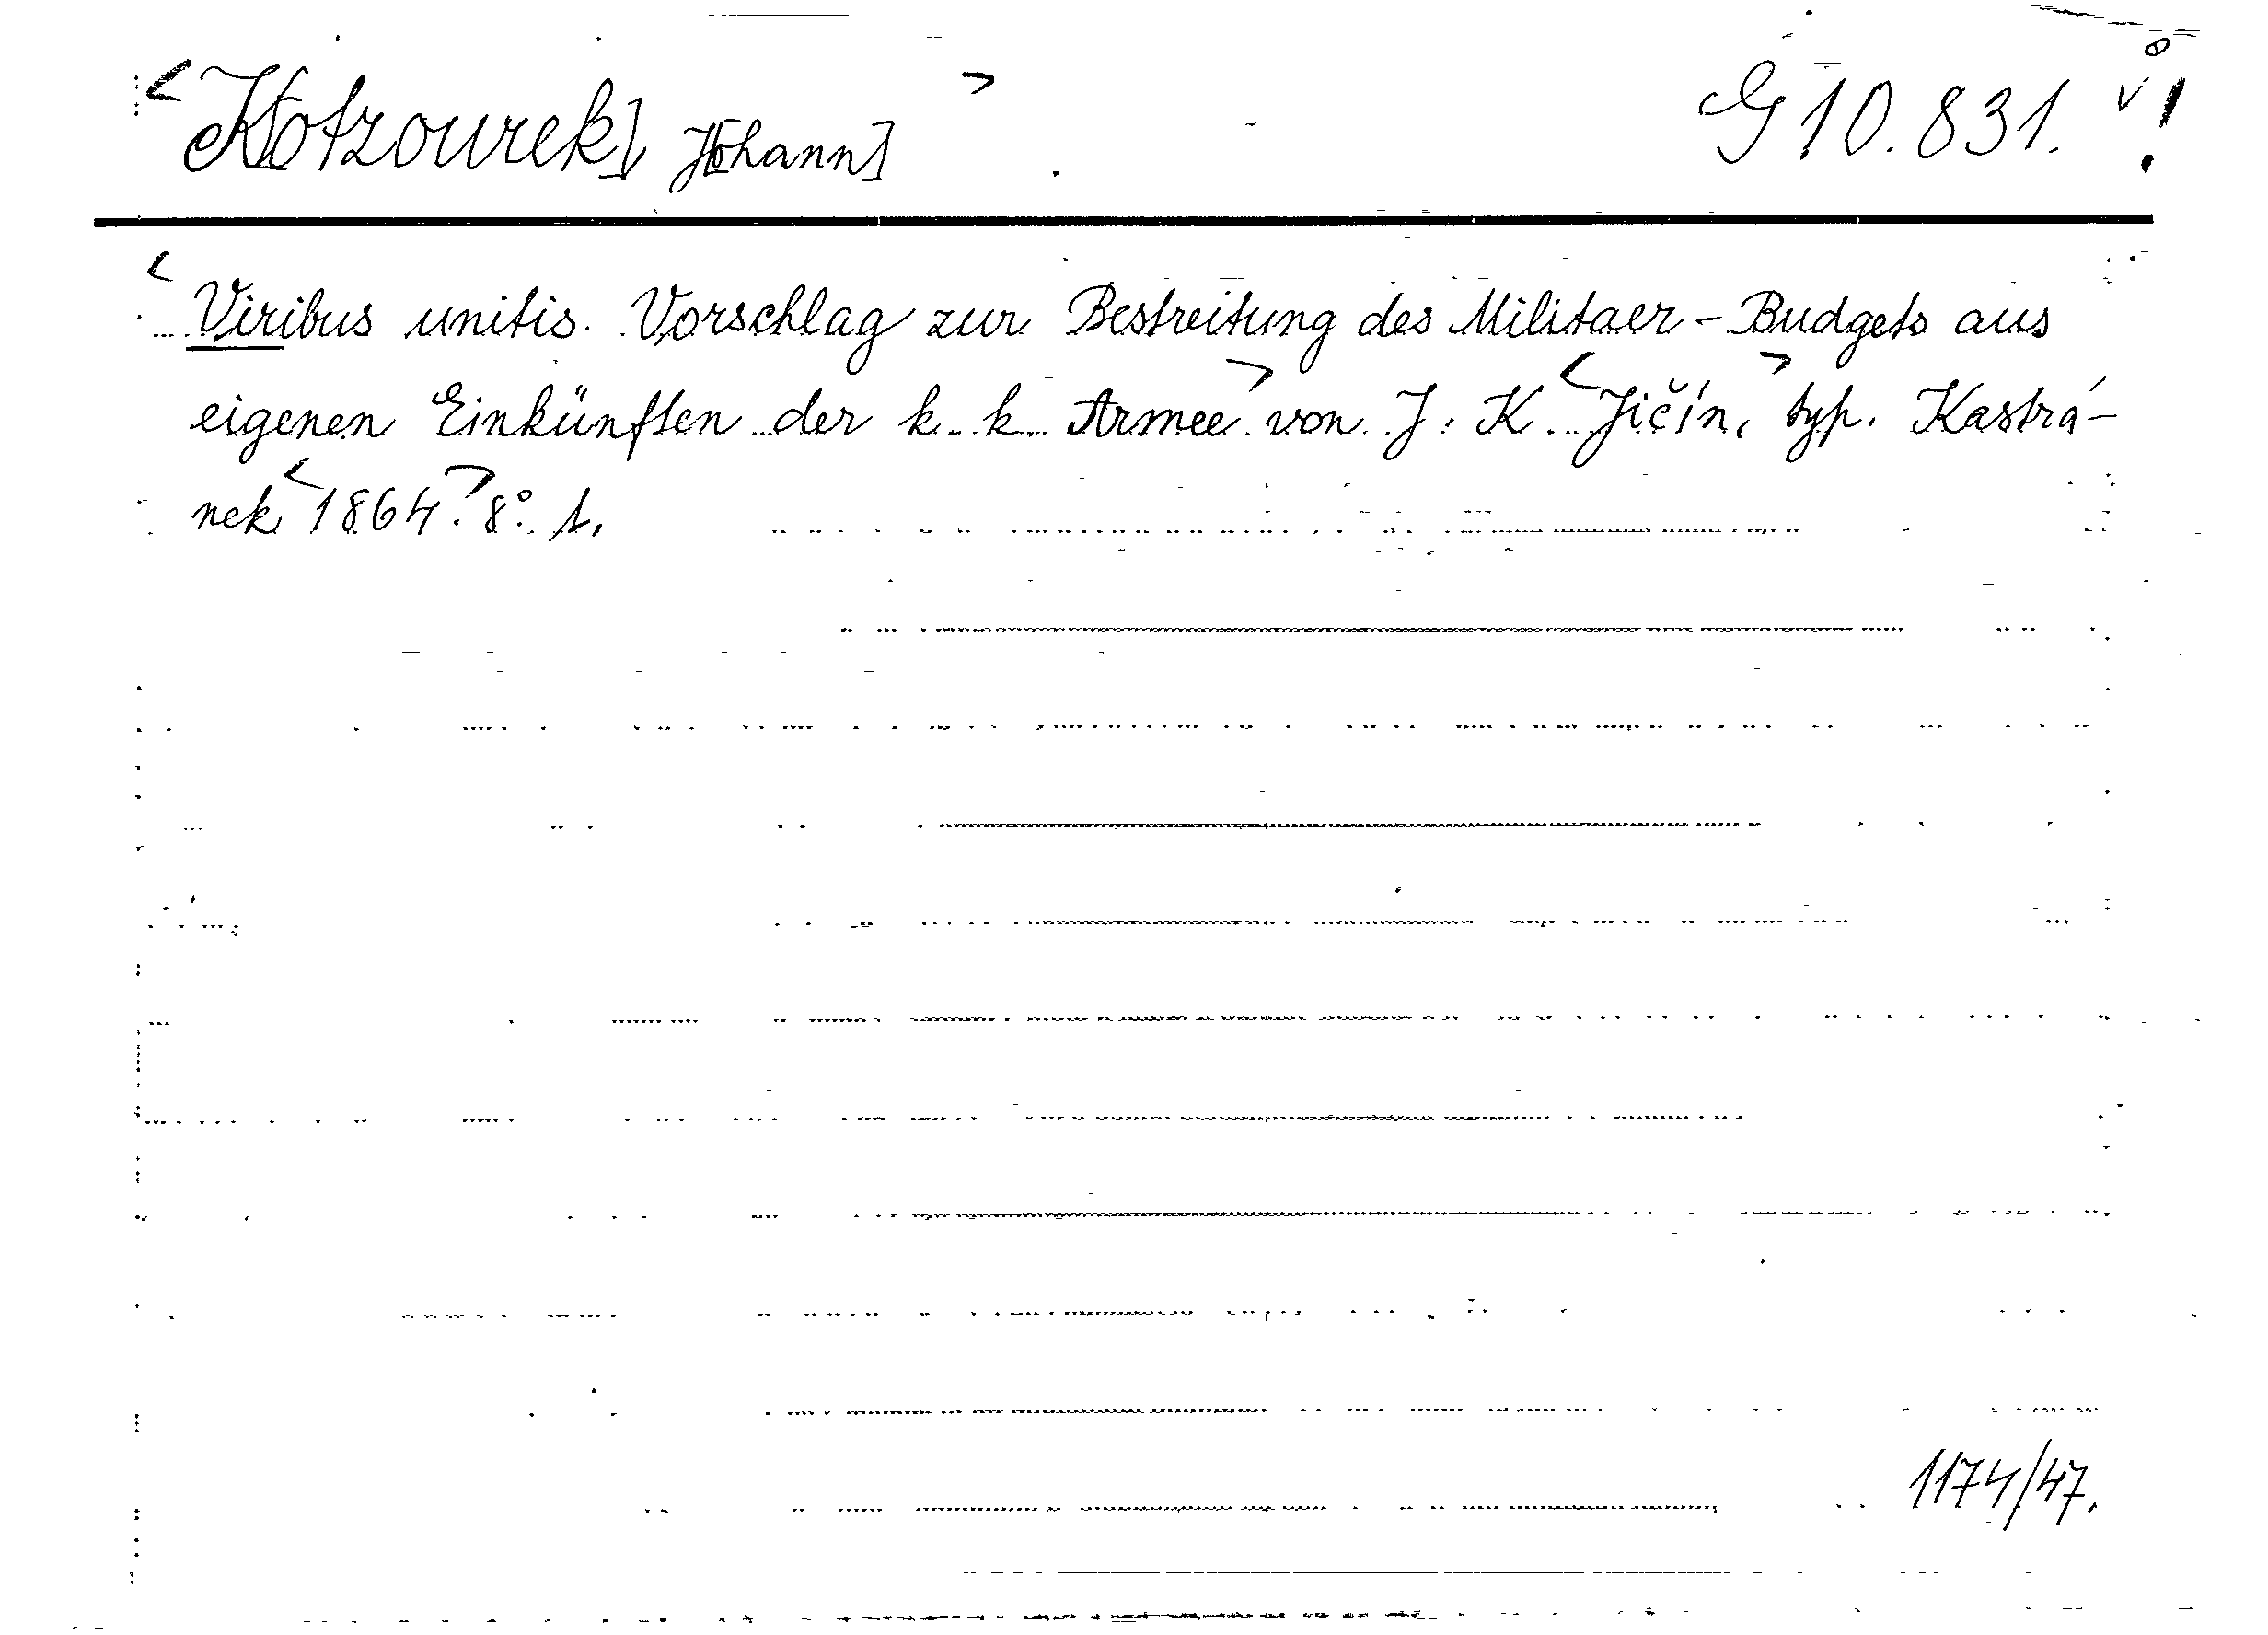 <K[otzourek] J[ohann]> G 10.831. v !
<Viribus unitis. Vorschlag zur Bestreitung des Militaer-Budgets aus
eigenen Einkünften der k. k. Armee> von J. K. <Jičín,> typ. Kastrá-
nek <1864.> 8°. 1.
1174/47.